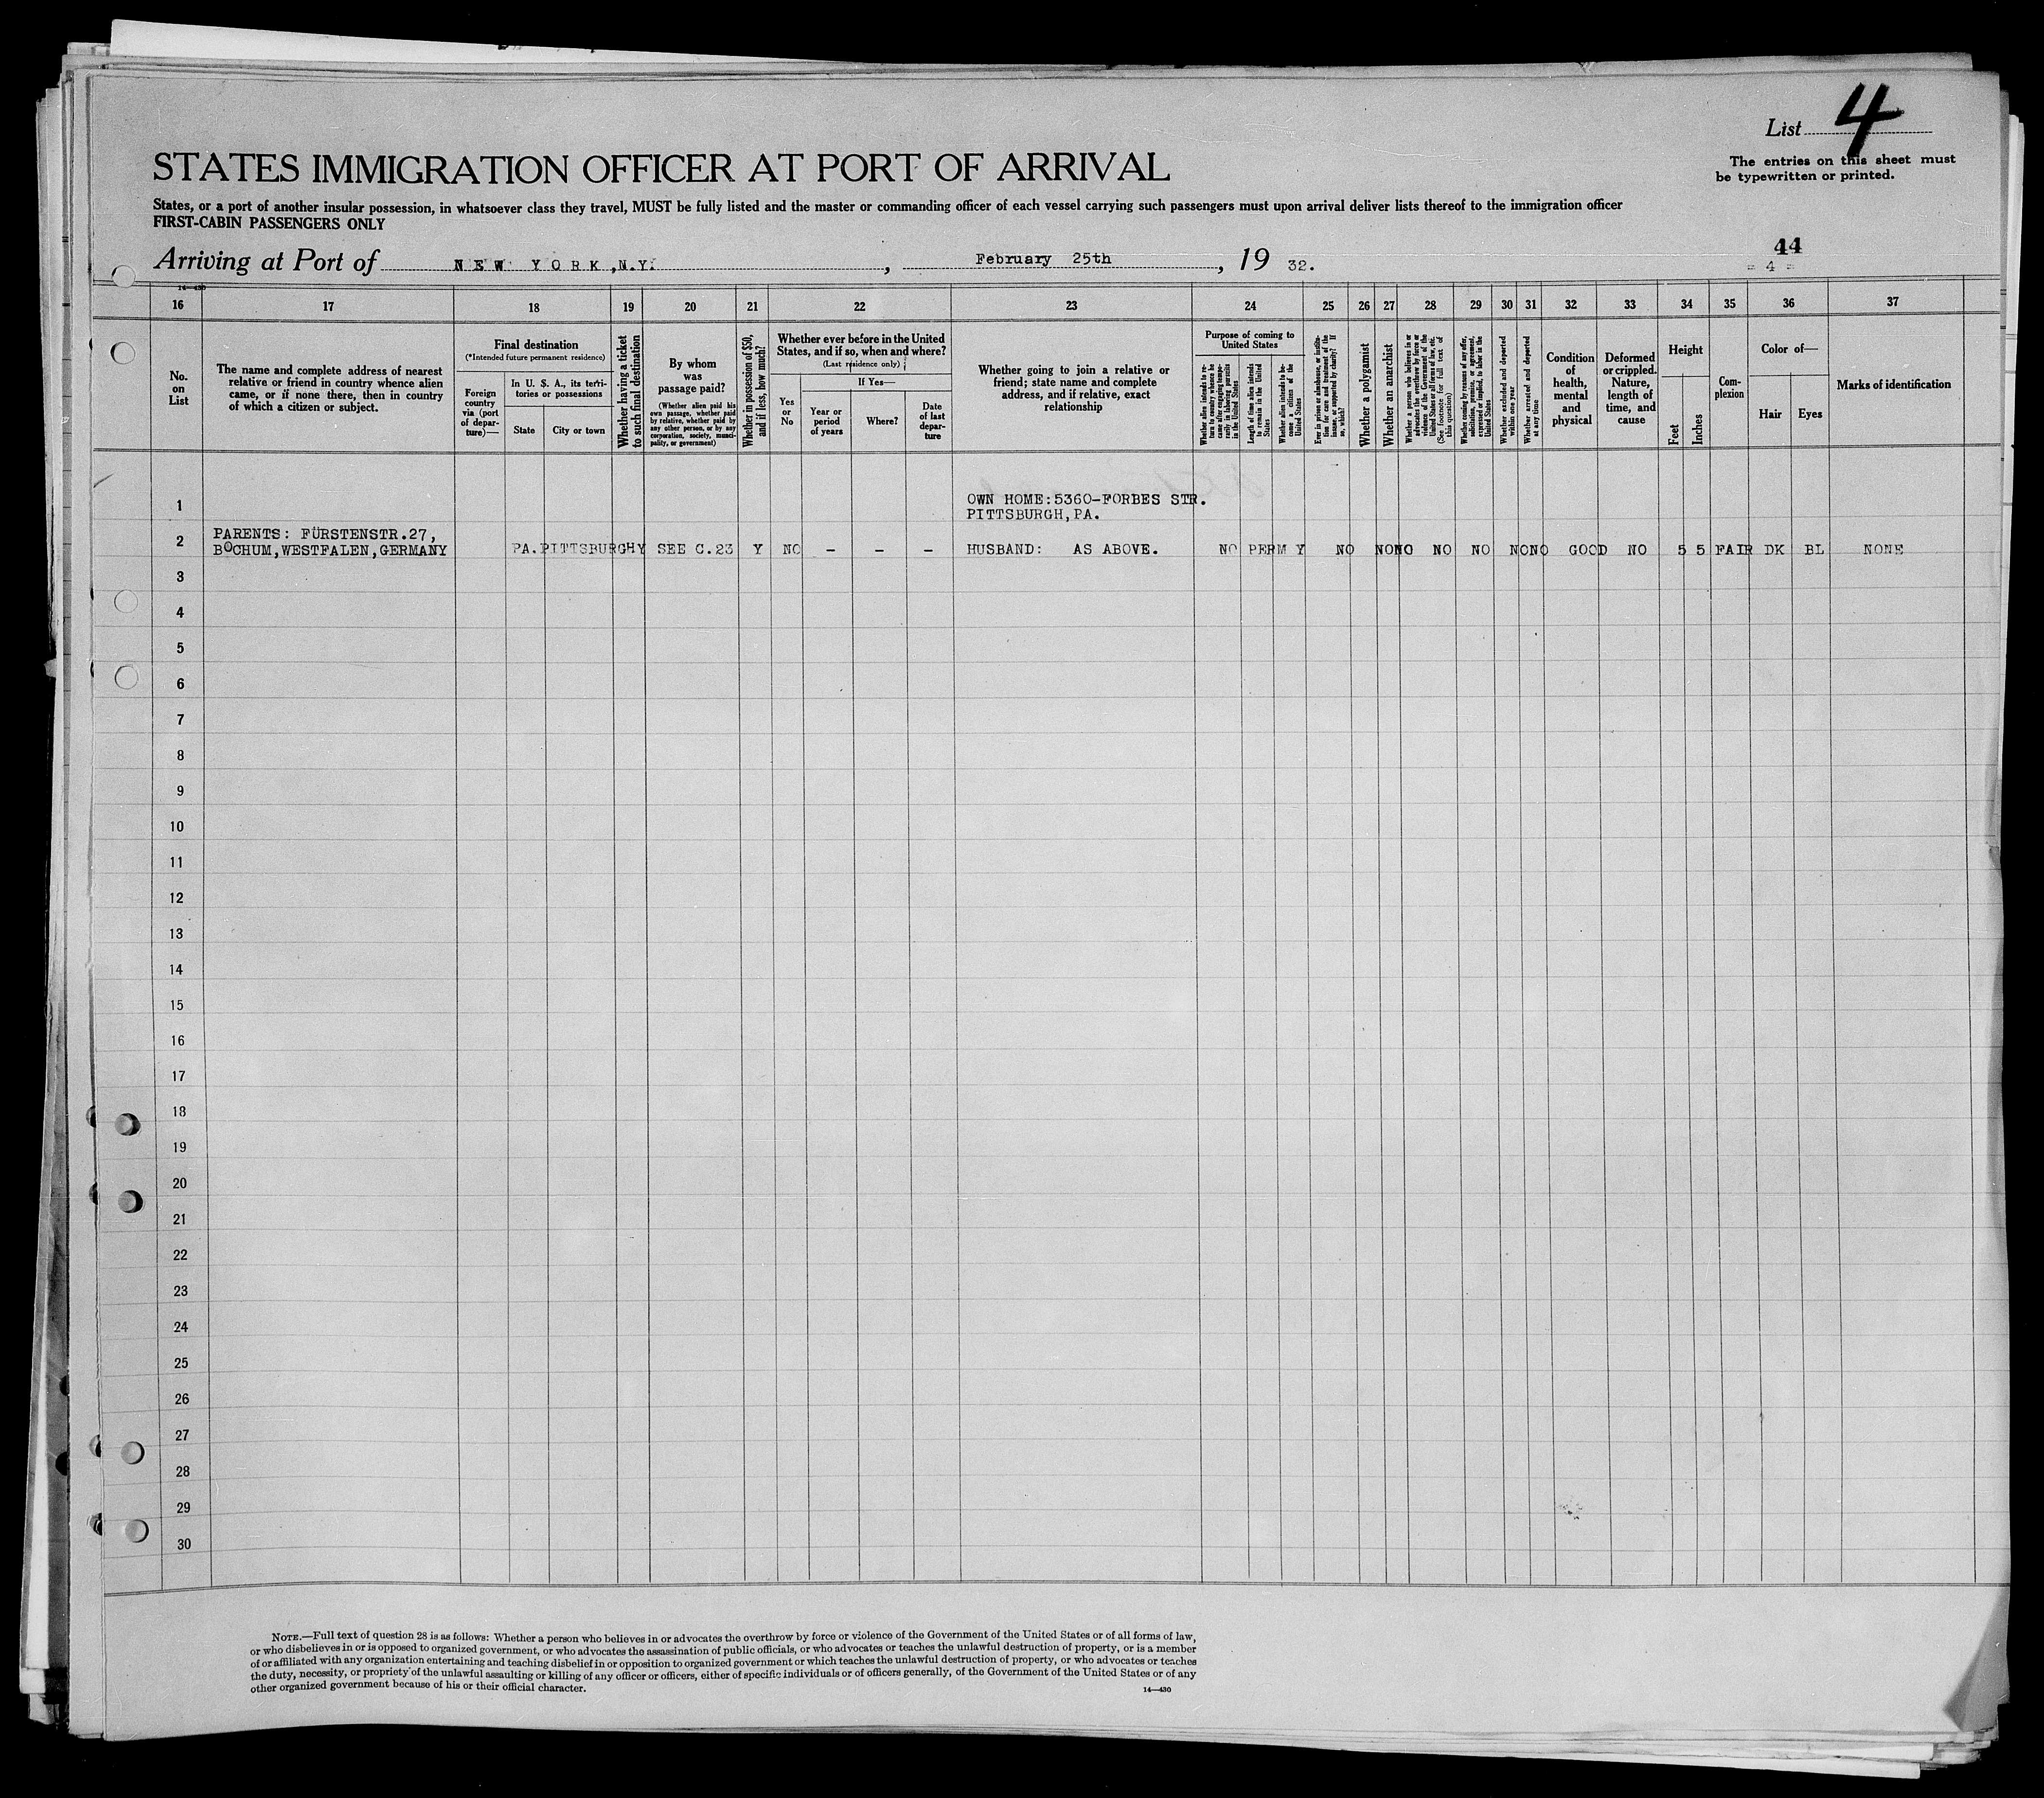 List 4
The entries on this sheet must
be typewritten or printed.
STATES IMMIGRATION OFFICER AT PORT OF ARRIVAL
States, or a port of another insular possession, in whatsoever class they travel, MUST be fully listed and the master or commanding officer of each vessel carrying such passengers must upon arrival deliver lists thereof to the immigration officer
FIRST-CABIN PASSENGERS ONLY
44
Arriving at Port of NEW YORK, N.Y. , February 25th , 19 32. = 4 =
14—430
16 17 18 19 20 21 22 23 24 25 26 27 28 29 30 31 32 33 34 35 36 37
No. on List
The name and complete address of nearest
relative or friend in country whence alien
came, or if none there, then in country
of which a citizen or subject.
Final destination
(*Intended future permanent residence)
Foreign country via (port of departure)—
In U. S. A., its territories or possessions
State
City or town
Whether having a ticket to such final destination
By whom was passage paid?
(Whether alien paid his own passage, whether paid by relative, whether paid by any other person, or by any corporation, society, municipality, or government)
Whether in possession of $50, and if less, how much?
Whether ever before in the United States, and if so, when and where?
(Last residence only)
Yes or No
If Yes—
Year or period of years
Where?
Date of last departure
Whether going to join a relative or
friend; state name and complete
address, and if relative, exact
relationship
Purpose of coming to United States
Whether alien intends to return to country whence he came after engaging temporarily in laboring pursuits in the United States
Length of time alien intends to remain in the United States
Whether alien intends to become a citizen of the United States
Ever in prison or almshouse, or institution for care and treatment of the insane, or supported by charity? If so, which?
Whether a polygamist
Whether an anarchist
Whether a person who believes in or advocates the overthrow by force or violence of the Government of the United States or all forms of law, etc. (See footnote for full text of this question)
Whether coming by reasons of any offer, solicitation, promise, or agreement, expressed or implied, to labor in the United States
Whether excluded and deported within one year
Whether arrested and deported at any time
Condition of health, mental and physical
Deformed or crippled. Nature, length of time, and cause
Height
Feet
Inches
Complexion
Color of—
Hair
Eyes
Marks of identification
1 OWN HOME:5360-FORBES STR.
PITTSBURGH,PA.
2 PARENTS: FÜRSTENSTR.27,
BOCHUM,WESTFALEN,GERMANY PA. PITTSBURGH Y SEE C.23 Y NO – – – HUSBAND: AS ABOVE. NO PERM Y NO NO NO NO NO NO NO GOOD NO 5 5 FAIR DK BL NONE
3
4
5
6
7
8
9
10
11
12
13
14
15
16
17
18
19
20
21
22
23
24
25
26
27
28
29
30
NOTE.—Full text of question 28 is as follows: Whether a person who believes in or advocates the overthrow by force or violence of the Government of the United States or of all forms of law,
or who disbelieves in or is opposed to organized government, or who advocates the assassination of public officials, or who advocates or teaches the unlawful destruction of property, or is a member
of or affiliated with any organization entertaining and teaching disbelief in or opposition to organized government or which teaches the unlawful destruction of property, or who advocates or teaches
the duty, necessity, or propriety of the unlawful assaulting or killing of any officer or officers, either of specific individuals or of officers generally, of the Government of the United States or of any
other organized government because of his or their official character.
14—430